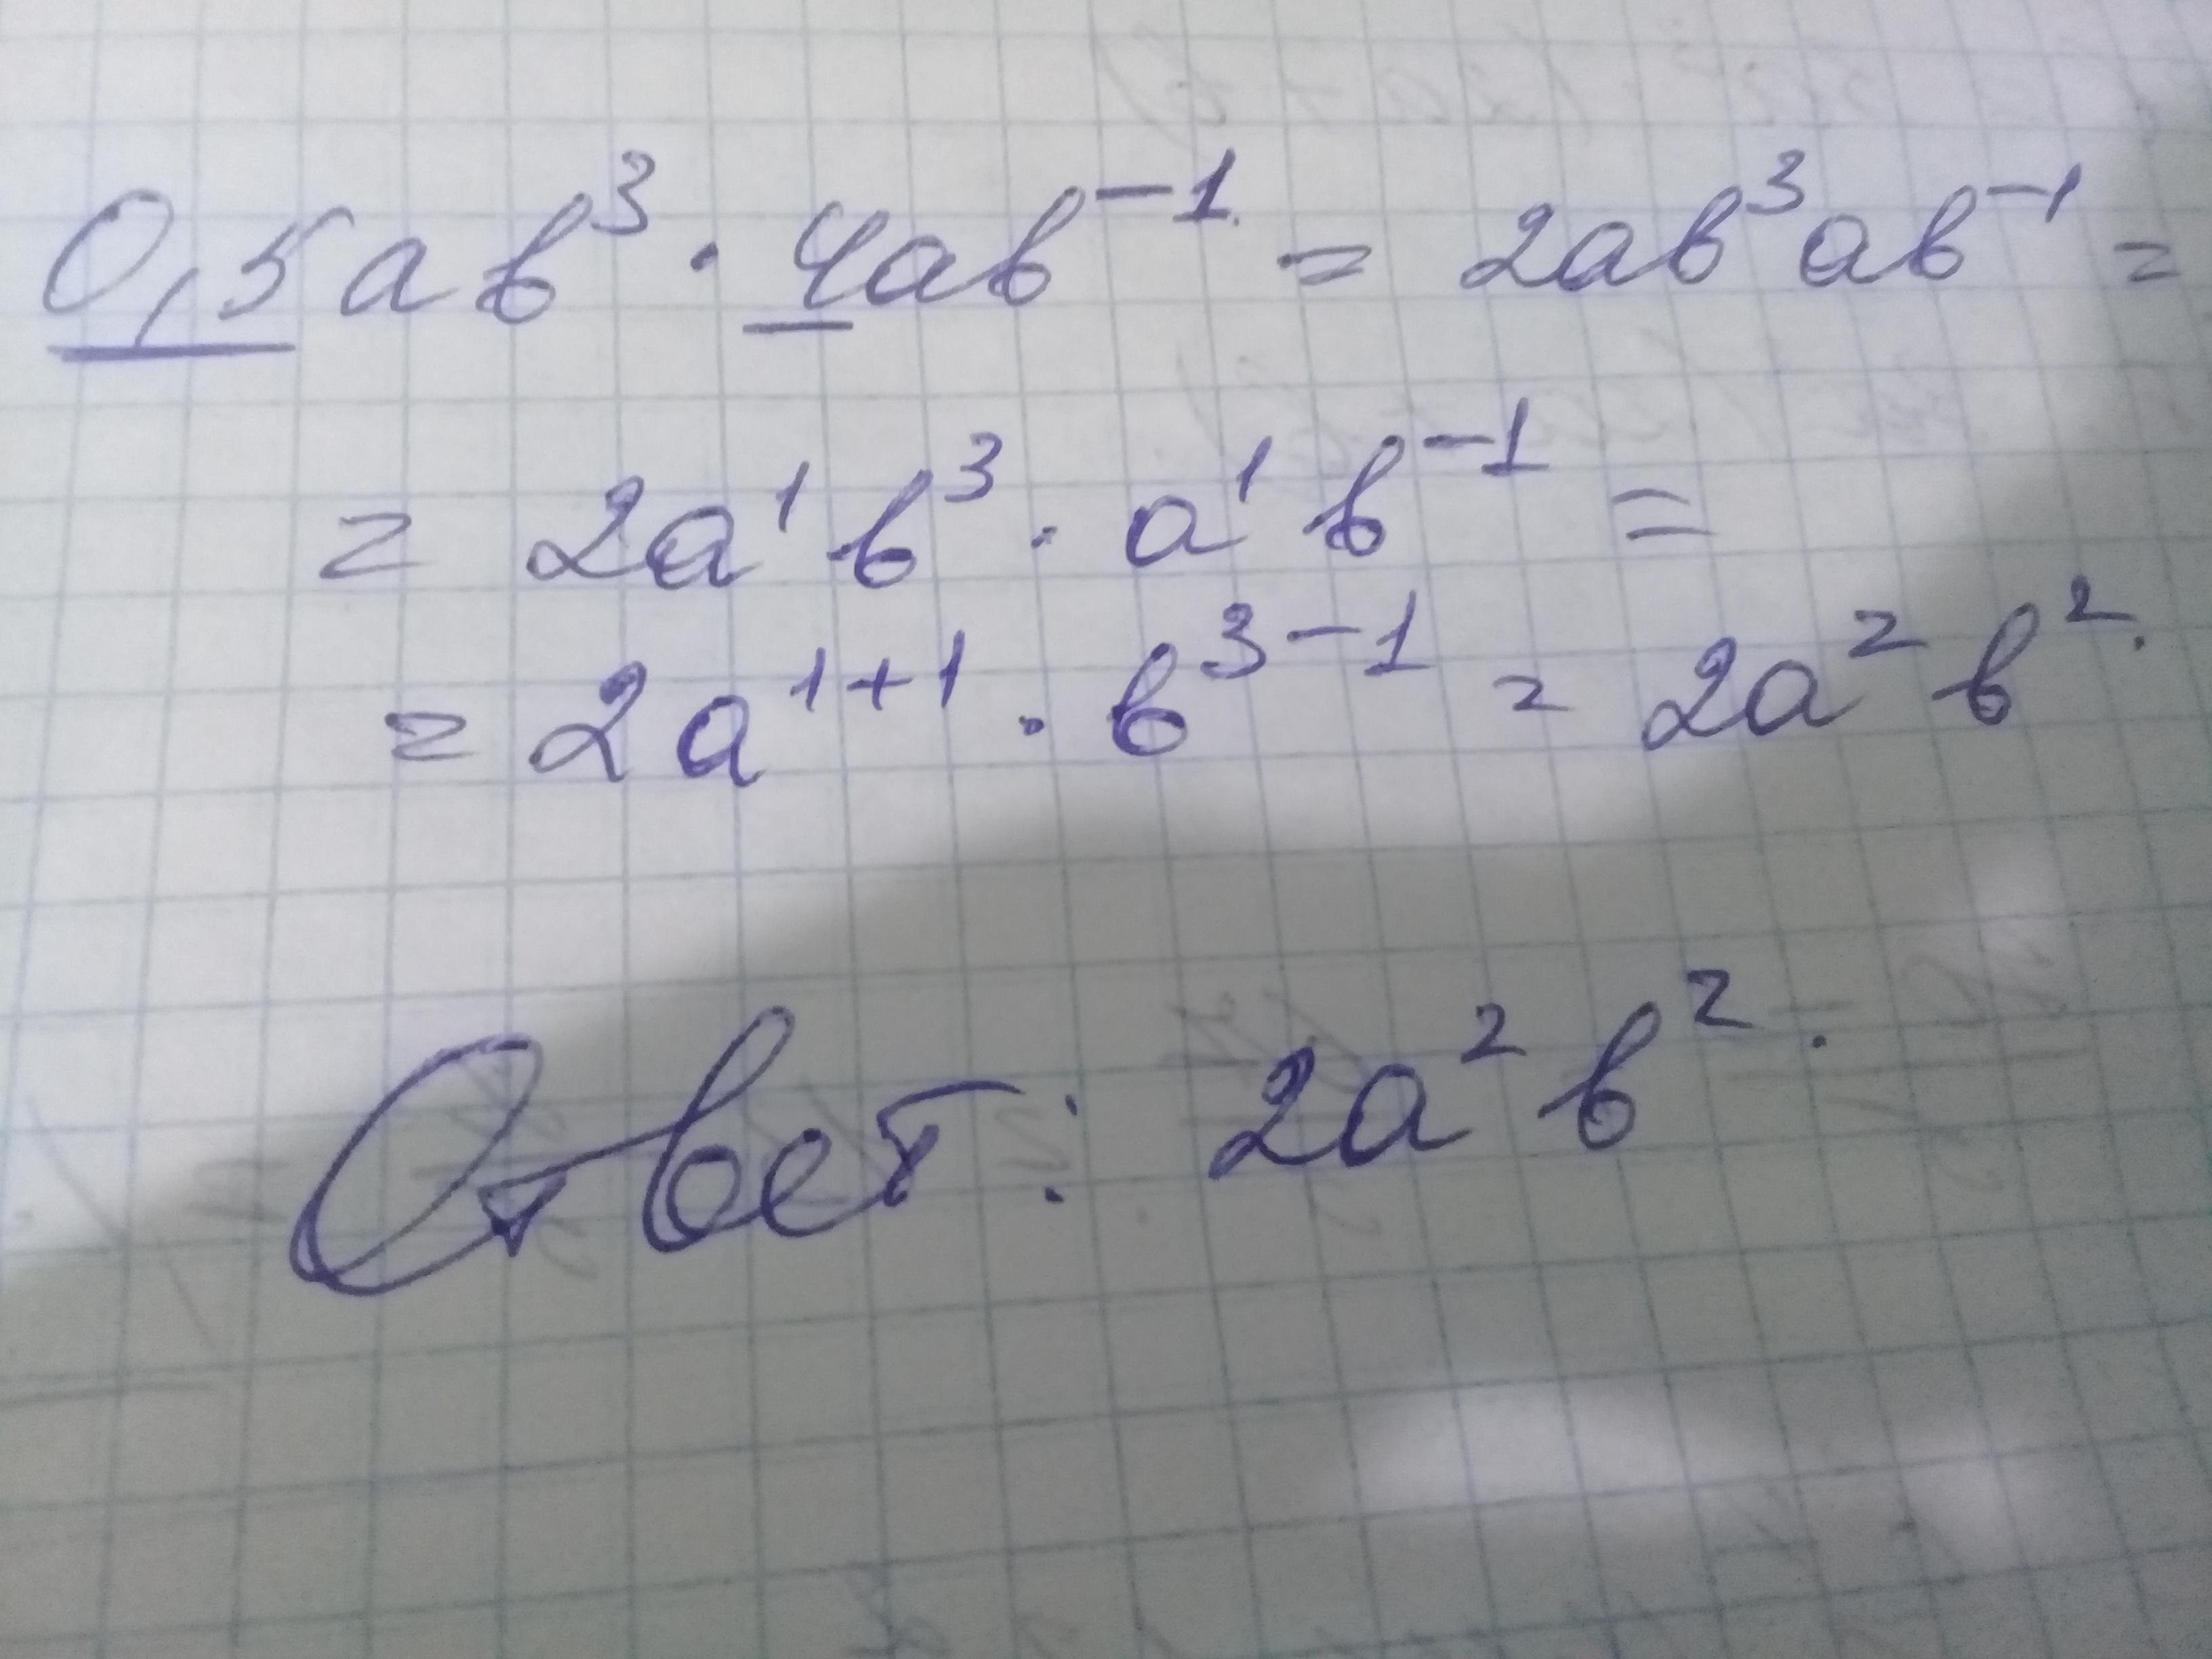 0,5ab³ · 4ab⁻¹ = 2ab³ab⁻¹ =
= 2a¹b³ · a¹b⁻¹ =
= 2a¹⁺¹ · b³⁻¹ = 2a²b².
Ответ: 2a²b².